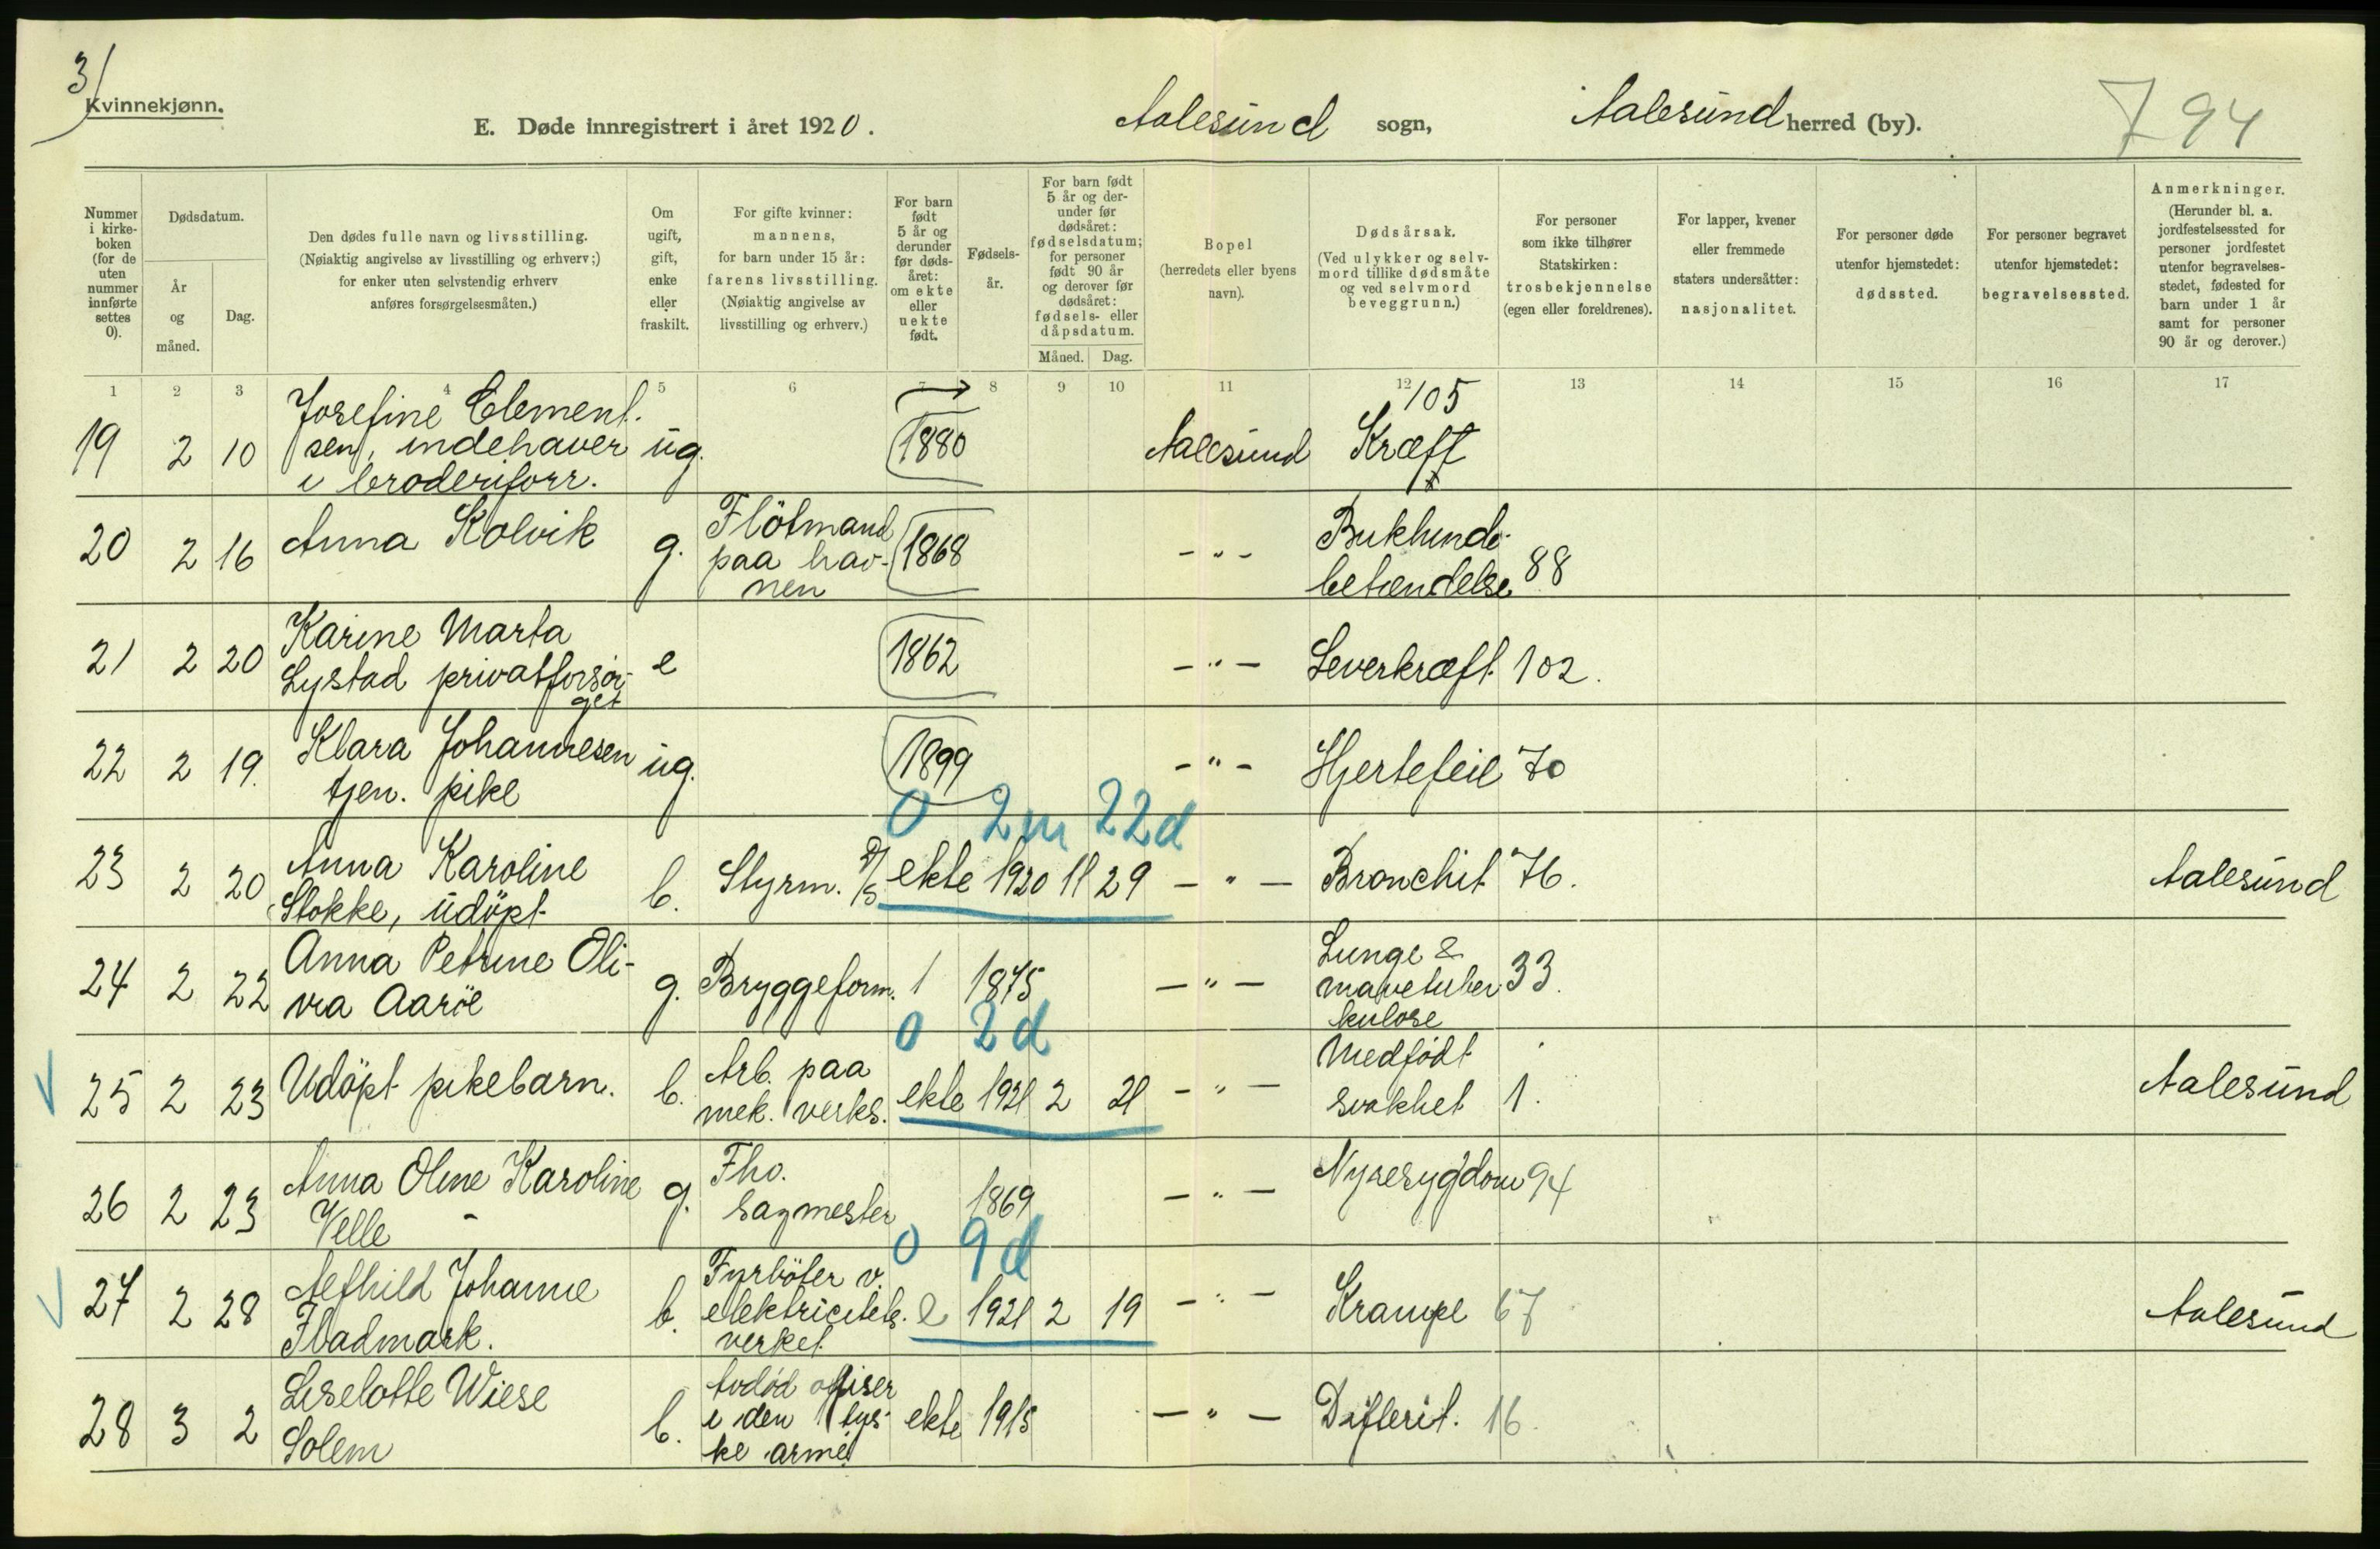 3/
Kvinnekjønn.
E. Døde innregistrert i året 1920.
Aalesund sogn,
Aalesund herred (by).
794
Nummer i kirkeboken (for de uten nummer innførte settes 0).
Dødsdatum.
År og måned.
Dag.
Den dødes fulle navn og livsstilling.
(Nøiaktig angivelse av livsstilling og erhverv;)
for enker uten selvstendig erhverv
anføres forsørgelsesmåten.)
Om ugift, gift, enke eller fraskilt.
For gifte kvinner:
mannens,
for barn under 15 år:
farens livsstilling.
(Nøiaktig angivelse av
livsstilling og erhverv.)
For barn født 5 år og derunder før dødsåret: om ekte eller uekte født.
Fødselsår.
For barn født 5 år og derunder før dødsåret: fødselsdatum; for personer født 90 år og derover før dødsåret: fødsels- eller dåpsdatum.
Måned. Dag.
Bopel
(herredets eller byens
navn).
Dødsårsak.
(Ved ulykker og selvmord tillike dødsmåte
og ved selvmord
beveggrunn.)
For personer
som ikke tilhører
Statskirken:
trosbekjennelse
(egen eller foreldrenes).
For lapper, kvener
eller fremmede
staters undersåtter:
nasjonalitet.
For personer døde
utenfor hjemstedet:
dødssted.
For personer begravet
utenfor hjemstedet:
begravelsessted.
Anmerkninger.
(Herunder bl. a.
jordfestelsessted for
personer jordfestet
utenfor begravelses-
stedet, fødested for
barn under 1 år
samt for personer
90 år og derover.)
1 2 3 4 5 6 7 8 9 10 11 12 13 14 15 16 17
19 2 10 Josefine Clement-
sen, indehaver
i broderiforr. ug. 1880 Aalesund Kræft 105
20 2 16 Anna Kolvik g. Flötmand
paa hav-
nen 1868 -"- Bukhinde-
betændelse 88
21 2 20 Karine Marta
Lystad privatforsör-
get e 1862 -"- Leverkræft 102.
22 2 19. Klara Johannesen
tjen. pike ug. 1899 -"- Hjertefeil 70
0 2m 22d
23 2 20 Anna Karoline
Stokke, udöpt b. Styrm. D/S ekte 1920 11 29 -"- Bronchit 76. Aalesund
24 2 22 Anna Petrine Oli-
vra Aaröe g. Bryggeform. 1 1875 -"- Lunge &
mavetuber
kulose 33.
0 2d
25 2 23 Udöpt pikebarn. b. Arb. paa
mek. verks. ekte 1921 2 21 -"- Medfödt
svakhet 1. Aalesund
26 2 23 Anna Oline Karoline
Velle g. Fho.
sagmester 1869 -"- Nyresygdom 94
0 9d
27 2 28 Alfhild Johanne
Fladmark. b. Fyrböter v.
elektricitets-
verket e 1921 2 19 -"- Krampe 67 Aalesund
28 3 2 Liselotte Wiese
Solem b. Avdød ofiser
i den tys-
ke armé ekte 1915 -"- Difterit. 16